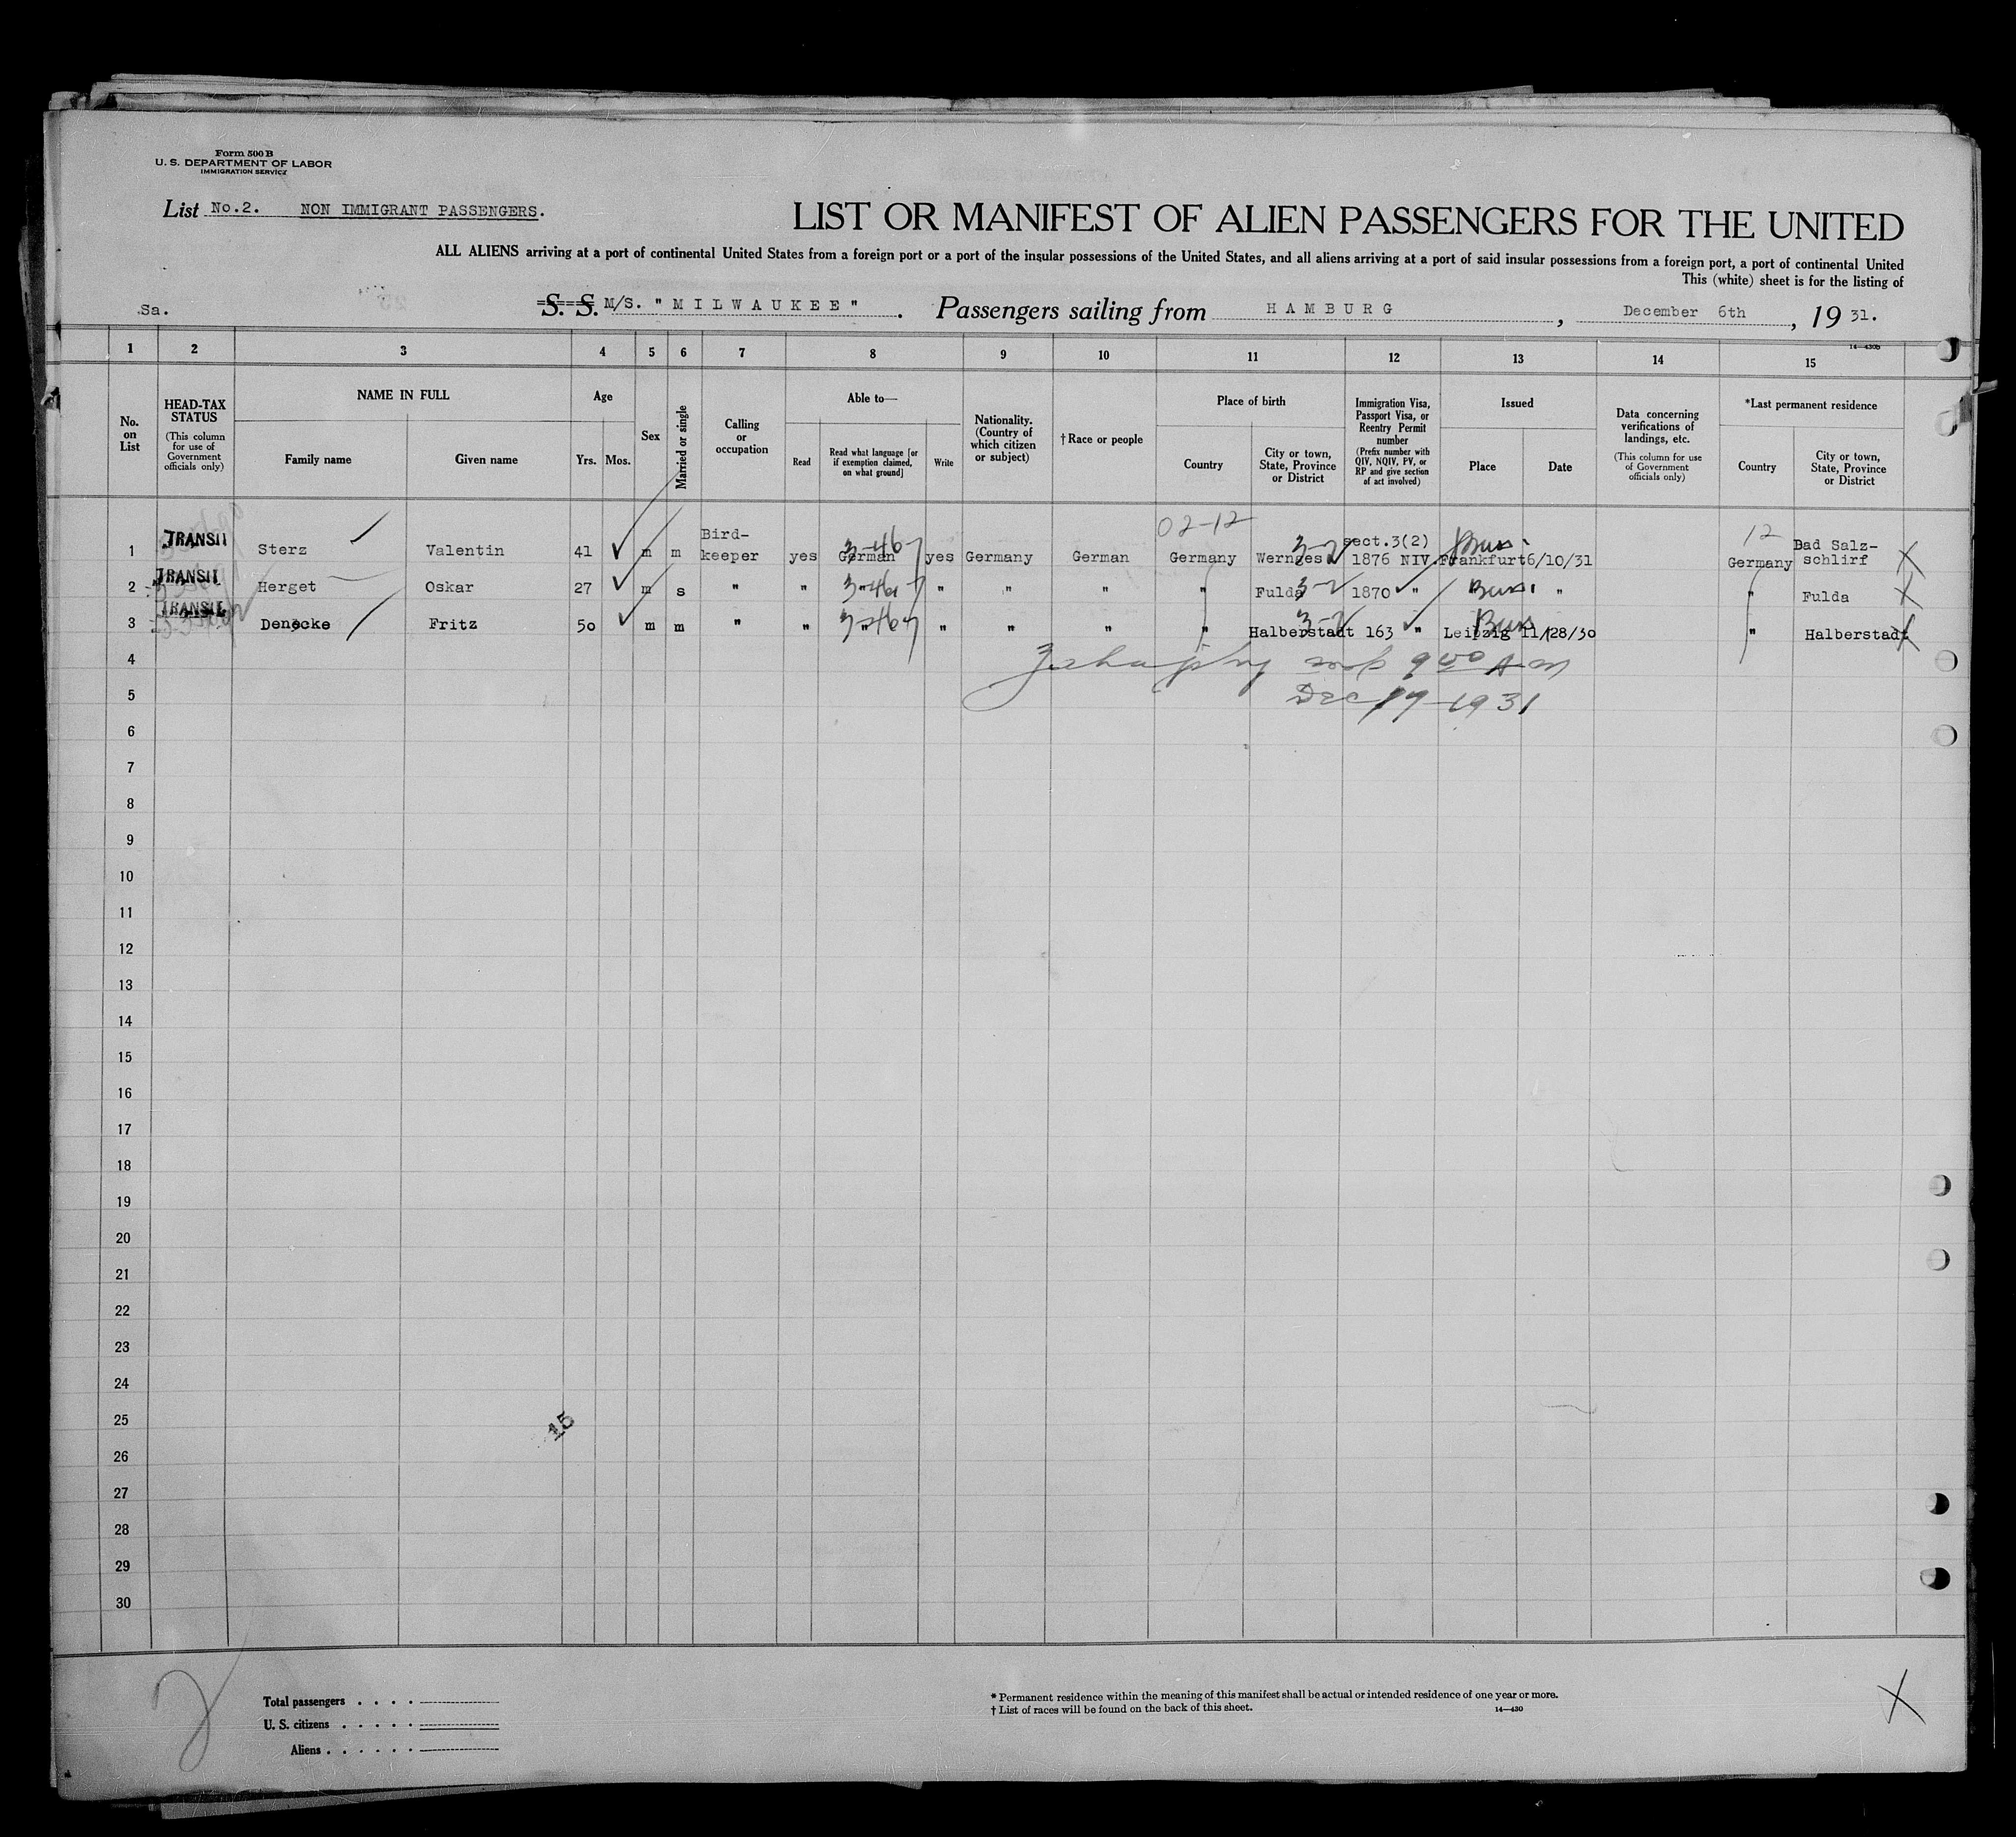 Form 500 B
U. S. DEPARTMENT OF LABOR
IMMIGRATION SERVICE
List No.2. NON IMMIGRANT PASSENGERS.
LIST OR MANIFEST OF ALIEN PASSENGERS FOR THE UNITED
ALL ALIENS arriving at a port of continental United States from a foreign port or a port of the insular possessions of the United States, and all aliens arriving at a port of said insular possessions from a foreign port, a port of continental United
This (white) sheet is for the listing of
Sa. S. S. M/S. "MILWAUKEE". Passengers sailing from HAMBURG, December 6th, 1931.
14—430B
1 2 3 4 5 6 7 8 9 10 11 12 13 14 15
No. on List
HEAD-TAX STATUS
(This column for use of Government officials only)
NAME IN FULL
Family name Given name
Age
Yrs. Mos.
Sex
Married or single
Calling or occupation
Able to—
Read Read what language [or if exemption claimed, on what ground] Write
Nationality. (Country of which citizen or subject)
†Race or people
Place of birth
Country City or town, State, Province or District
Immigration Visa, Passport Visa, or Reentry Permit number
(Prefix number with QIV, NQIV, PV, or RP and give section of act involved)
Issued
Place Date
Data concerning verifications of landings, etc.
(This column for use of Government officials only)
*Last permanent residence
Country City or town, State, Province or District
02-12 12
1 TRANSIT Sterz Valentin 41 m m Bird-keeper yes German 3-46 yes Germany German Germany Wernges 3-2 sect.3(2) 1876 NIV. Frankfurt 6/10/31 Germany Bad Salz-schlirf X
2 TRANSIT Herget Oskar 27 m s " " " 3-46 " " " " Fulda 3-2 1870 " " " Fulda X
3 TRANSIT Denecke Fritz 50 m m " " " 3-46 " " " " Halberstadt 3-2 163 " Leipzig 11/28/30 " Halberstadt X
4
5 Dec 17-1931
6
7
8
9
10
11
12
13
14
15
16
17
18
19
20
21
22
23
24
25
15
26
27
28
29
30
Total passengers
U. S. citizens
Aliens
* Permanent residence within the meaning of this manifest shall be actual or intended residence of one year or more.
† List of races will be found on the back of this sheet.
14—430
X